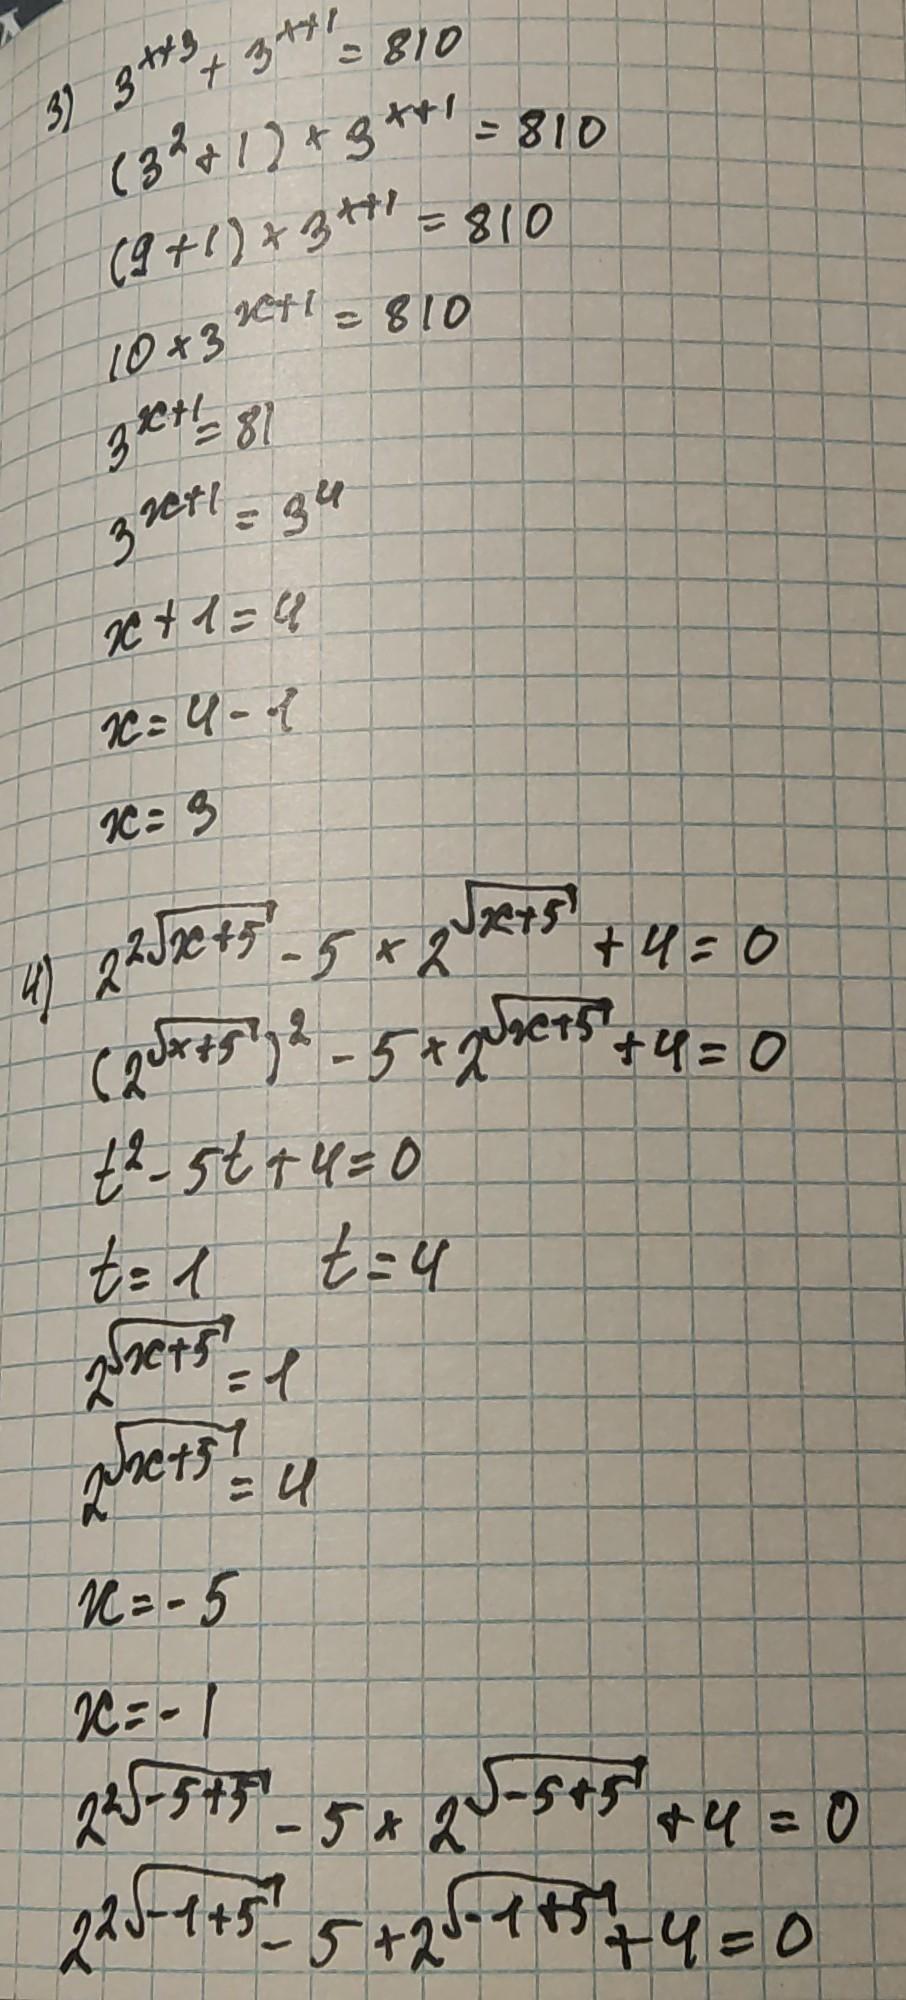 3) 3^{x+3} + 3^{x+1} = 810
(3^2 + 1) × 3^{x+1} = 810
(9 + 1) × 3^{x+1} = 810
10 × 3^{x+1} = 810
3^{x+1} = 81
3^{x+1} = 3^4
x + 1 = 4
x = 4 - 1
x = 3
4) 2^{2√(x+5)} - 5 × 2^{√(x+5)} + 4 = 0
(2^{√(x+5)})^2 - 5 × 2^{√(x+5)} + 4 = 0
t^2 - 5t + 4 = 0
t = 1 t = 4
2^{√(x+5)} = 1
2^{√(x+5)} = 4
x = - 5
x = - 1
2^{2√(-5+5)} - 5 × 2^{√(-5+5)} + 4 = 0
2^{2√(-1+5)} - 5 + 2^{√(-1+5)} + 4 = 0